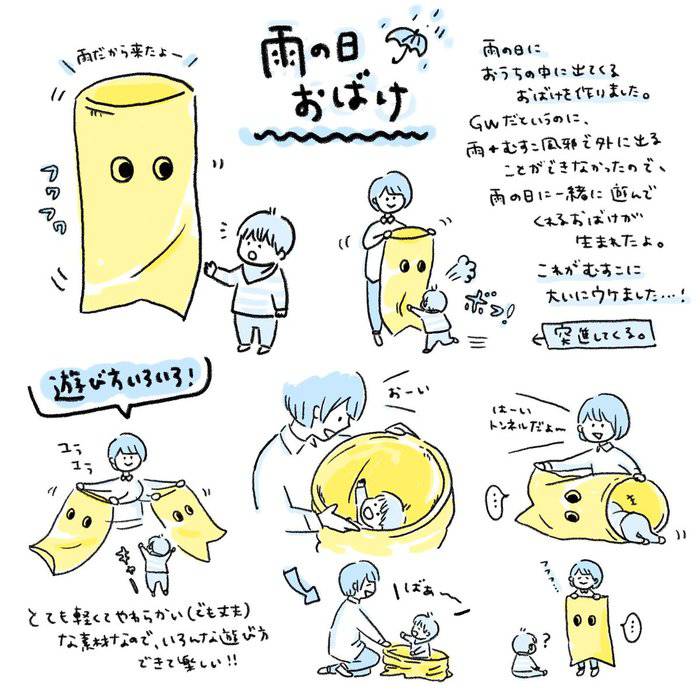 雨だから来たよー
雨の日
おばけ
雨の日に
おうちの中に出てくる
おばけを作りました。
GWだというのに、
雨+むすこ風邪で外に出る
ことができなかったので、
雨の日に一緒に遊んで
くれるおばけが
生まれたよ。
これがむすこに
大いにウケました…!
フワフワ
ボフッ!
突進してくる。
遊び方いろいろ!
ユラ
ユラ
きゃー
とても軽くてやわらかい(でも丈夫)
な素材なので、いろんな遊び方
できて楽しい!!
おーい
ばぁ〜
はーい
トンネルだよ〜
…
フフフ…
?
…